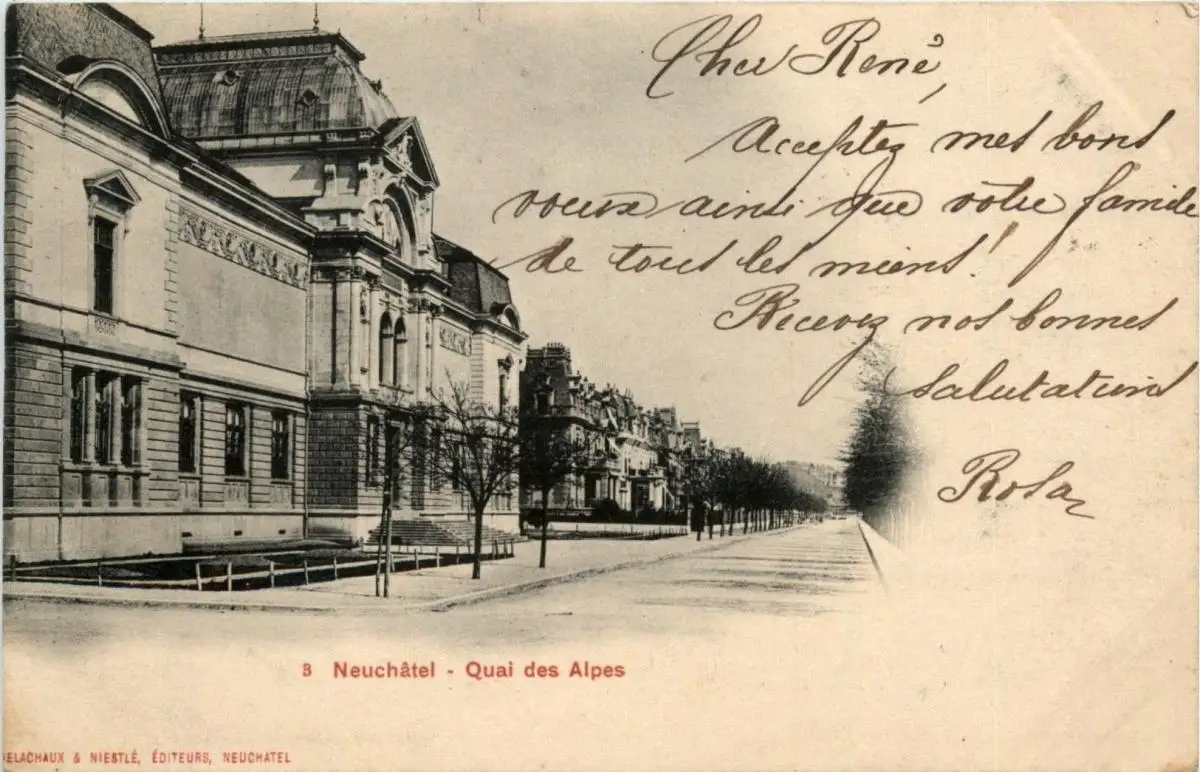 Cher René,
Acceptez mes bons
voeux ainsi que votre famille
de tous les miens!
Recevez nos bonnes
salutations
Rosa
3 Neuchâtel - Quai des Alpes
DELACHAUX & NIESTLÉ, ÉDITEURS, NEUCHATEL